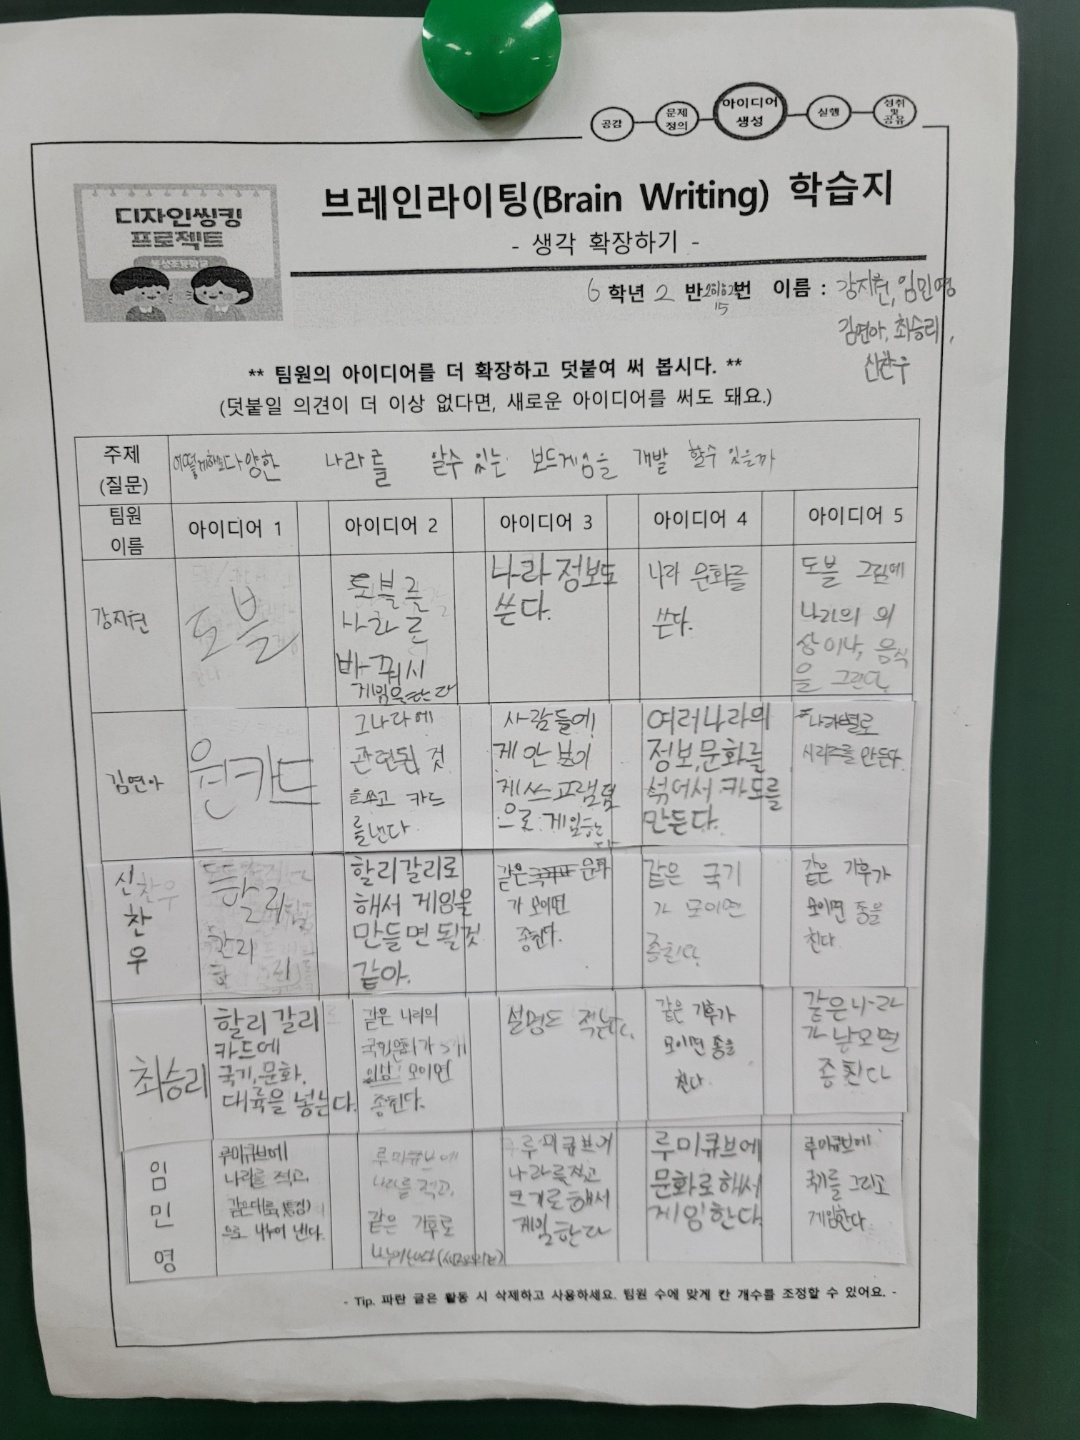 공감
문제
정의
아이디어
생성
실행
성취
및
공유
디자인씽킹
프로젝트
브레인라이팅(Brain Writing) 학습지
- 생각 확장하기 -
6 학년 2 반 번 이름 : 강지현, 임민영
15
김연아, 최승리,
신찬우
** 팀원의 아이디어를 더 확장하고 덧붙여 써 봅시다. **
(덧붙일 의견이 더 이상 없다면, 새로운 아이디어를 써도 돼요.)
주제
(질문)
어떻게하면 다양한 나라를 알수 있는 보드게임을 개발 할수 있을까
팀원
이름
아이디어 1
아이디어 2
아이디어 3
아이디어 4
아이디어 5
강지현
도블
도블를
나라로
바꿔서
게임을 한다
나라 정보도
쓴다.
나라 문화를
쓴다.
도블 그림에
나라의 의
상이나, 음식
을 그린다.
김연아
원카드
그나라에
관련된 것
을쓰고 카드
를낸다
사람들에
게 안 보이
게 쓰고
으로 게임한
다
여러나라의
정보,문화를
섞어서 카드를
만든다.
나라별로
시리즈를 만든다.
신찬우
신
찬
우
할리
할리갈리로
해서 게임을
만들면 될것
같아.
같은 문화
가 모이면
종친다.
같은 국기
가 모이면
종친다.
같은 기후가
모이면 종을
친다
최승리
할리갈리
카드에
국기,문화,
대륙을 넣는다.
같은 나라의
이상 모이면
종친다.
설명도 적는다.
같은 기후가
모이면 종을
친다
같은나라
가 나오면
종친다
임
민
영
루미큐브에
나라를 적고,
같은대륙(특징)
으로 나누어 낸다.
루미큐브에
나라를 적고,
같은 기후로
루미큐브에
나라를적고
크기로 해서
게임한다
루미큐브에
문화로해서
게임한다
루미큐브에
국기를 그리고
게임한다
- Tip. 파란 글은 활동 시 삭제하고 사용하세요. 팀원 수에 맞게 칸 개수를 조정할 수 있어요. -